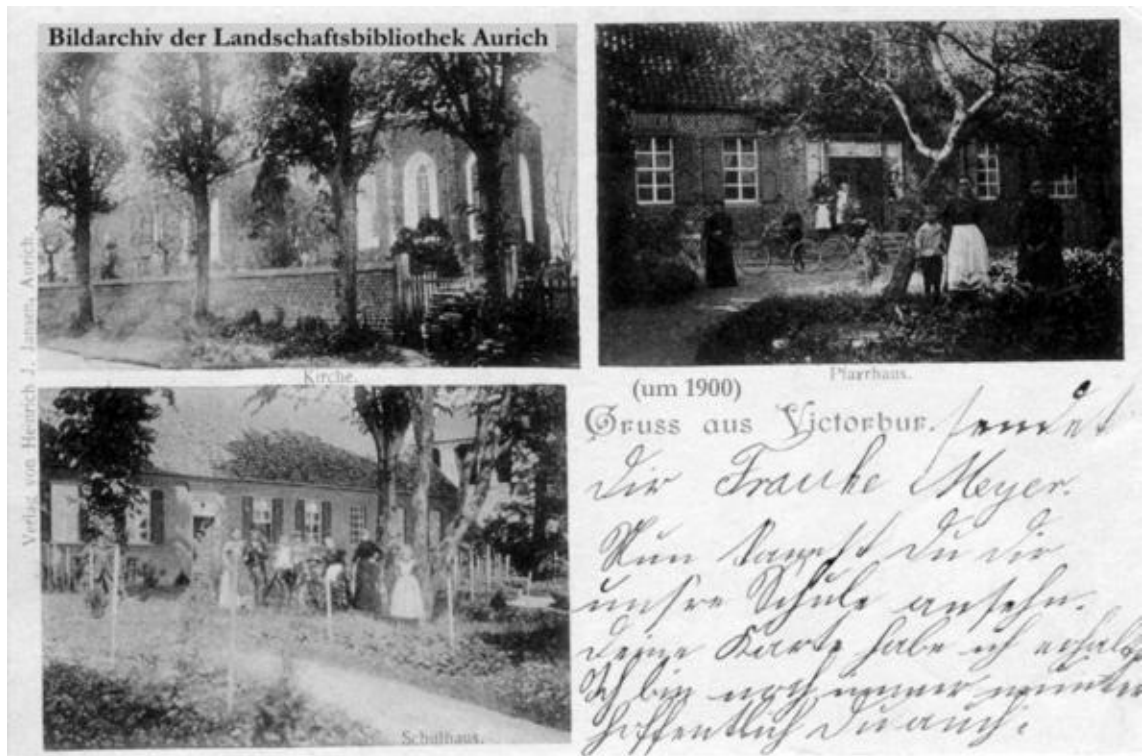 Bildarchiv der Landschaftsbibliothek Aurich
Kirche.
Pfarrhaus.
Verlag von Heinrich J. Jansen, Aurich.
(um 1900)
Gruss aus Victorbur. sendet
Dir Frauke Meyer.
Nun kannst Du dir
unsre Schule ansehn.
Deine Karte habe ich erhalt.
Ich bin noch immer munter
hoffentlich Du auch.
Schulhaus.